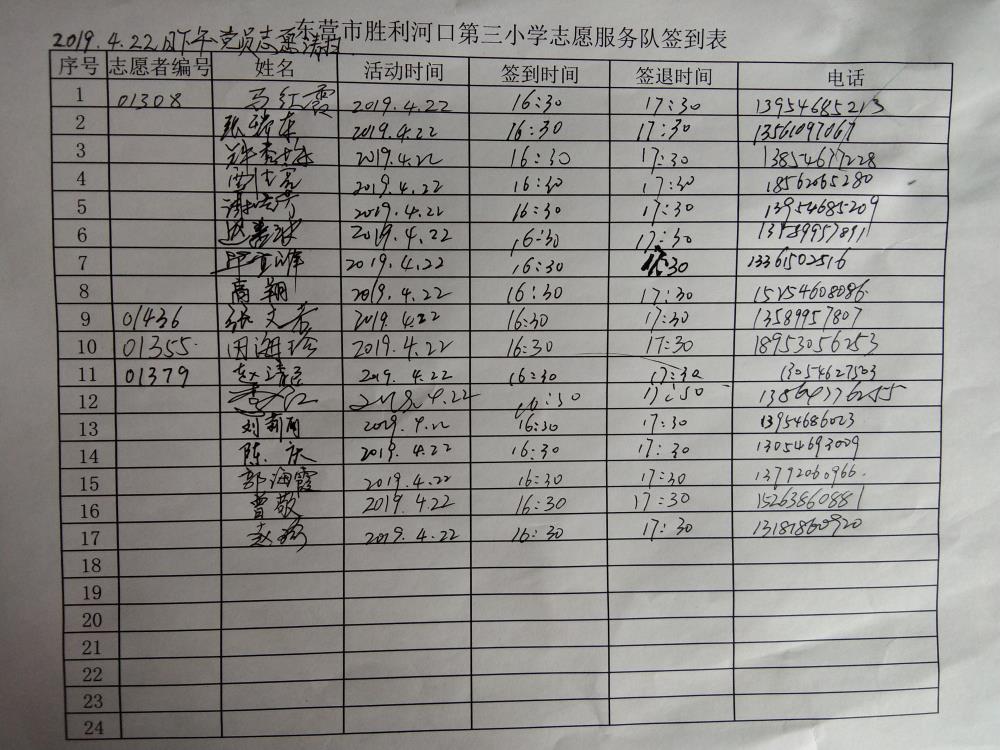 东营市胜利河口第三小学志愿服务队签到表
2019.4.22日下午党员志愿清扫
序号 志愿者编号 姓名 活动时间 签到时间 签退时间 电话
1 01308 马红霞 2019.4.22 16:30 17:30 13954685213
2 张瑞东 2019.4.22 16:30 17:30 13561097067
3 2019.4.22 16:30 17:30 13854677228
4 2019.4.22 16:30 17:30 18562065280
5 2019.4.22 16:30 17:30 13954685209
6 2019.4.22 16:30 17:30
7 2019.4.22 16:30 17:30 13361502516
8 高翔 2019.4.22 16:30 17:30 15254608086
9 01436 张文秀 2019.4.22 16:30 17:30 13589957807
10 01355 田海珍 2019.4.22 16:30 17:30 18953056253
11 01379 2019.4.22 16:30 17:30 13054627503
12 李红 2019.4.22 16:30 17:30
13 刘莉丽 2019.4.22 16:30 17:30 13954686023
14 陈庆 2019.4.22 16:30 17:30 13054693009
15 郭海霞 2019.4.22 16:30 17:30 13792060966
16 曹敬 2019.4.22 16:30 17:30 15263860881
17 2019.4.22 16:30 17:30 13181860920
18
19
20
21
22
23
24